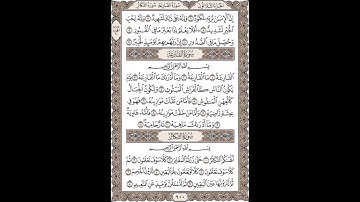 إِنَّ الْإِنسَانَ لِرَبِّهِ لَكَنُودٌ ٦ وَإِنَّهُ عَلَى ذَلِكَ لَشَهِيدٌ ٧ وَإِنَّهُ لِحُبِّ
الْخَيْرِ لَشَدِيدٌ ٨ أَفَلَا يَعْلَمُ إِذَا بُعْثِرَ مَا فِي الْقُبُورِ ٩
وَحُصِّلَ مَا فِي الصُّدُورِ ١٠ إِنَّ رَبَّهُم بِهِمْ يَوْمَئِذٍ لَّخَبِيرٌ ١١
سُورَةُ الْقَارِعَةِ
بِسْمِ اللَّهِ الرَّحْمَنِ الرَّحِيمِ
الْقَارِعَةُ ١ مَا الْقَارِعَةُ ٢ وَمَا أَدْرَاكَ مَا الْقَارِعَةُ ٣
يَوْمَ يَكُونُ النَّاسُ كَالْفَرَاشِ الْمَبْثُوثِ ٤ وَتَكُونُ الْجِبَالُ
كَالْعِهْنِ الْمَنفُوشِ ٥ فَأَمَّا مَن ثَقُلَتْ مَوَازِينُهُ ٦ فَهُوَ فِي
عِيشَةٍ رَّاضِيَةٍ ٧ وَأَمَّا مَنْ خَفَّتْ مَوَازِينُهُ ٨ فَأُمُّهُ هَاوِيَةٌ
٩ وَمَا أَدْرَاكَ مَا هِيَهْ ١٠ نَارٌ حَامِيَةٌ ١١
سُورَةُ التَّكَاثُرِ
بِسْمِ اللَّهِ الرَّحْمَنِ الرَّحِيمِ
أَلْهَاكُمُ التَّكَاثُرُ ١ حَتَّى زُرْتُمُ الْمَقَابِرَ ٢ كَلَّا سَوْفَ تَعْلَمُونَ ٣
ثُمَّ كَلَّا سَوْفَ تَعْلَمُونَ ٤ كَلَّا لَوْ تَعْلَمُونَ عِلْمَ الْيَقِينِ ٥ لَتَرَوُنَّ الْجَحِيمَ ٦
ثُمَّ لَتَرَوُنَّهَا عَيْنَ الْيَقِينِ ٧ ثُمَّ لَتُسْأَلُنَّ يَوْمَئِذٍ عَنِ النَّعِيمِ ٨
٦٠٠